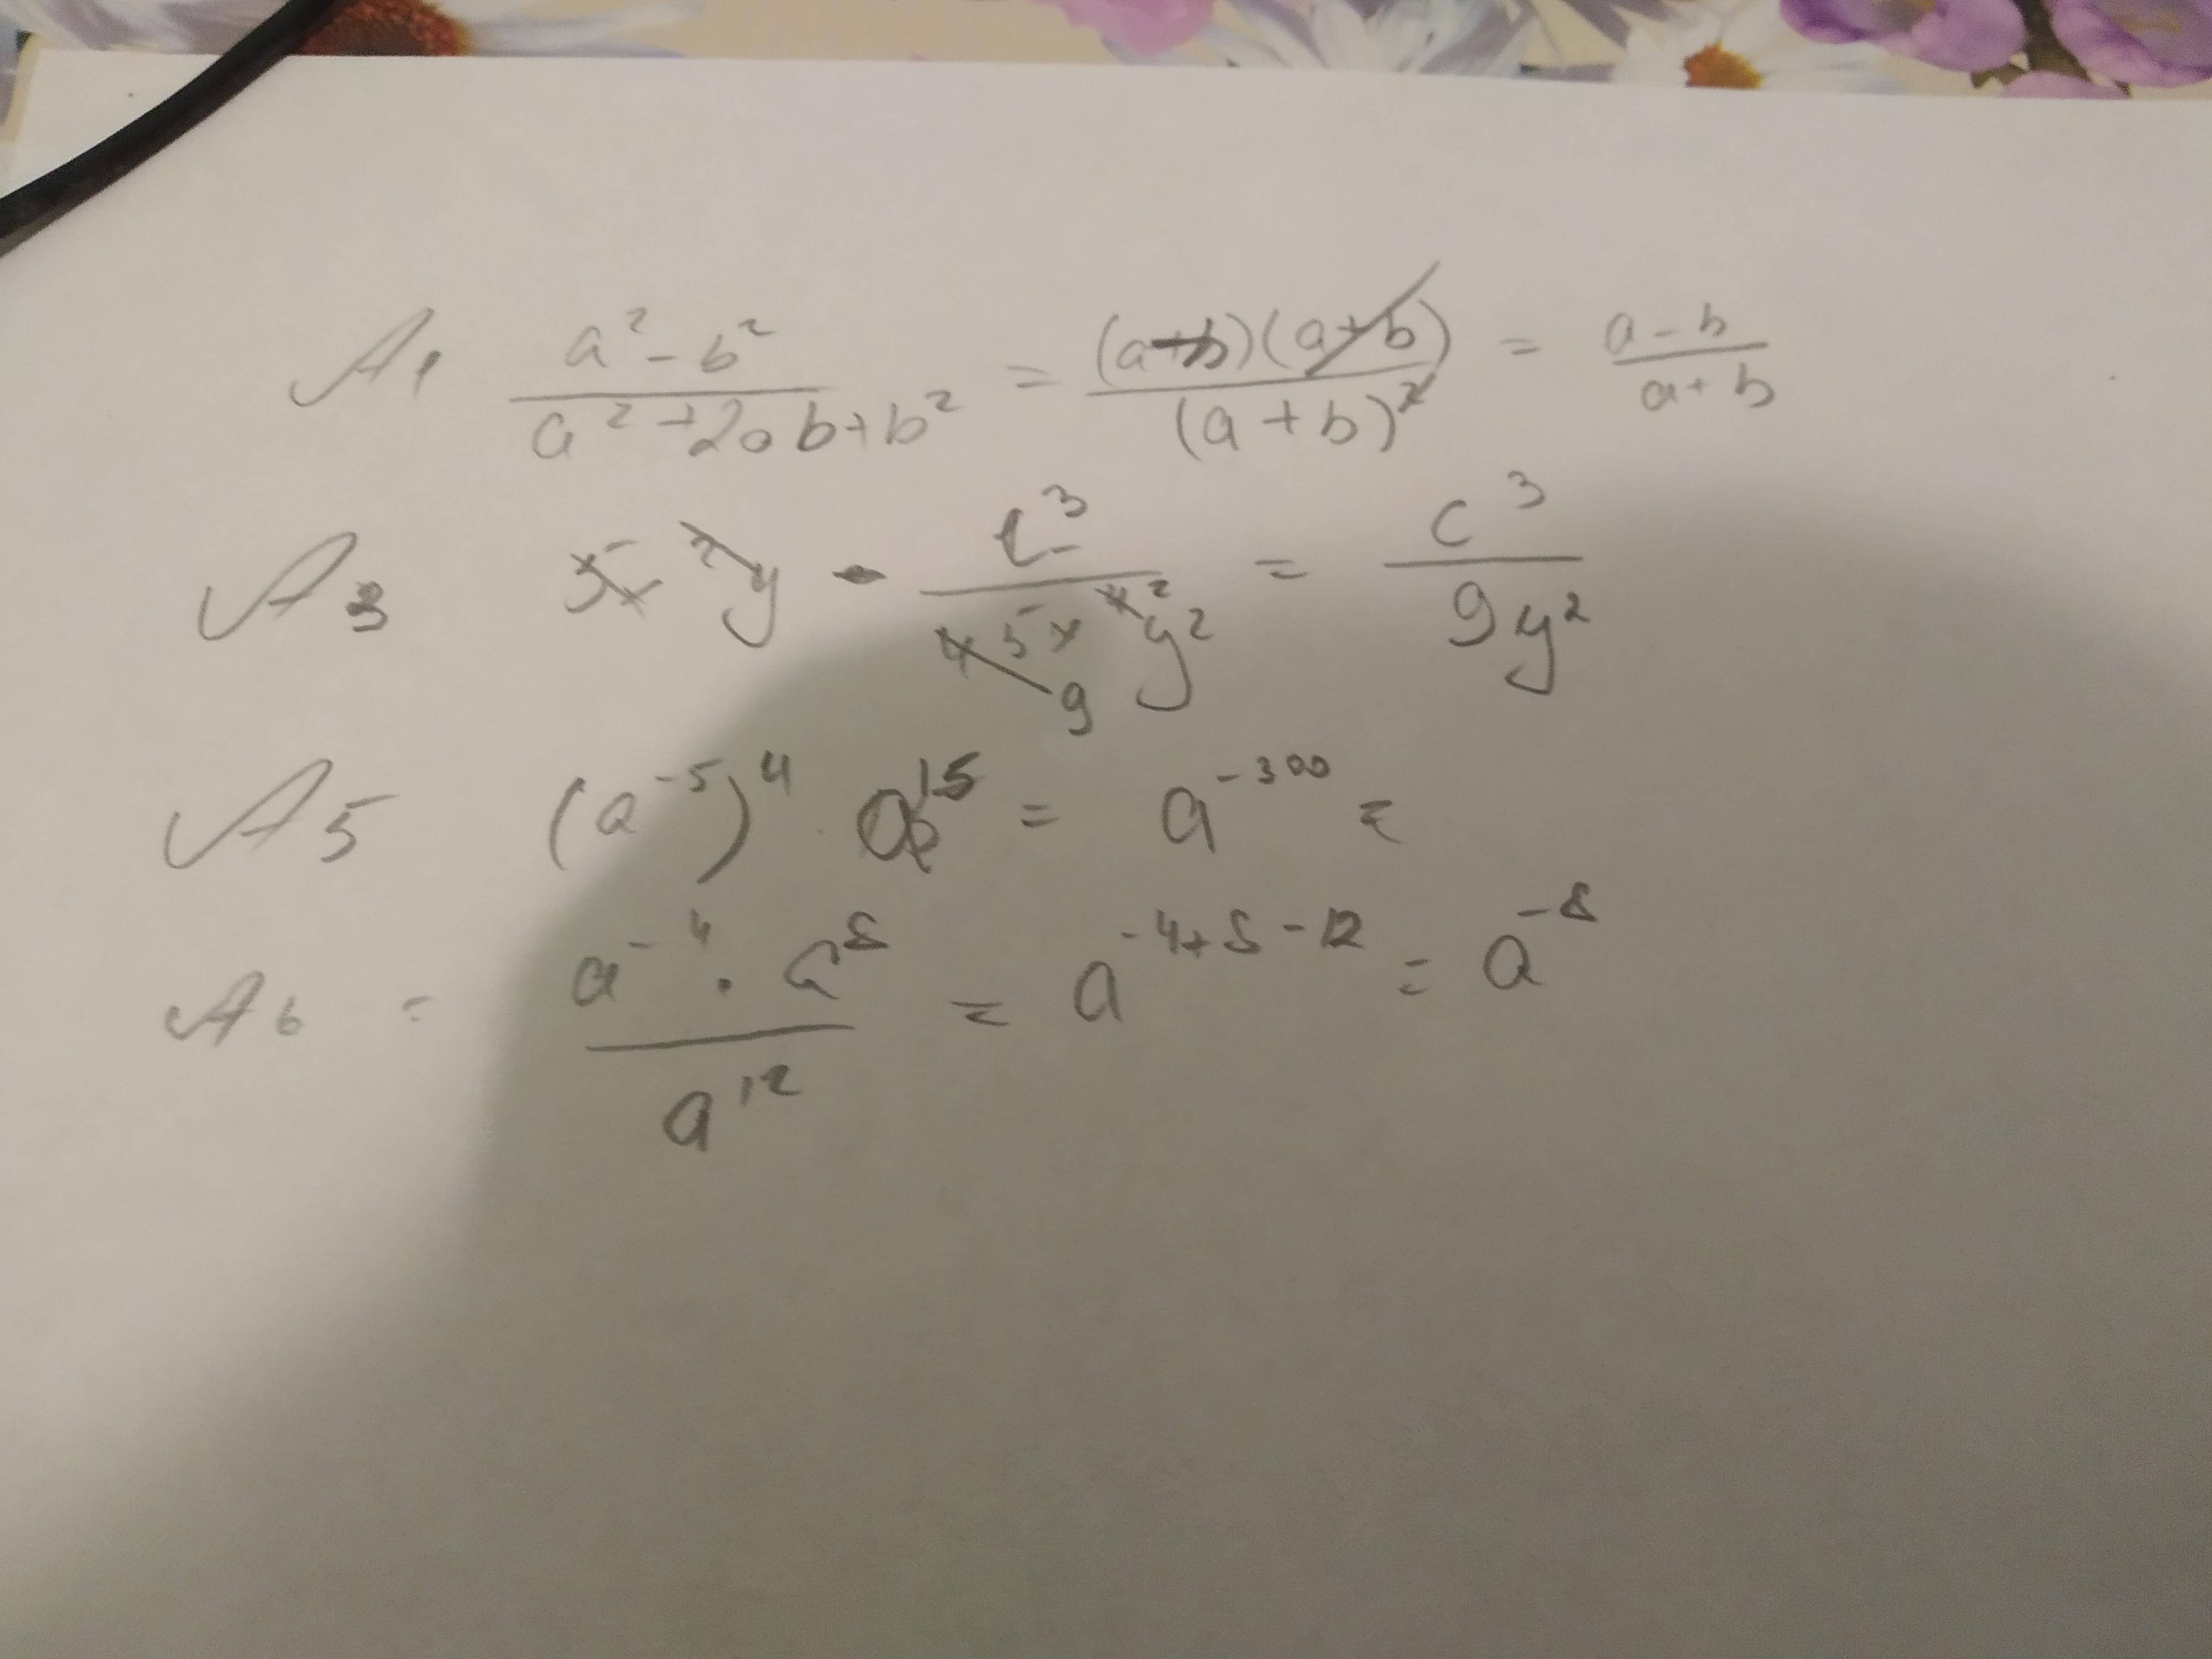 A1 a² - b² / a² + 2ab + b² = (a-b)(a+b) / (a+b)² = a - b / a + b
A3 5x²y · c³ / 45x⁴y² = c³ / 9y²
A5 (a⁻⁵)⁴ · a¹⁵ = a⁻³⁰⁰ =
A6 = a⁻⁴ · a⁸ / a¹² = a⁻⁴⁺⁸⁻¹² = a⁻⁸